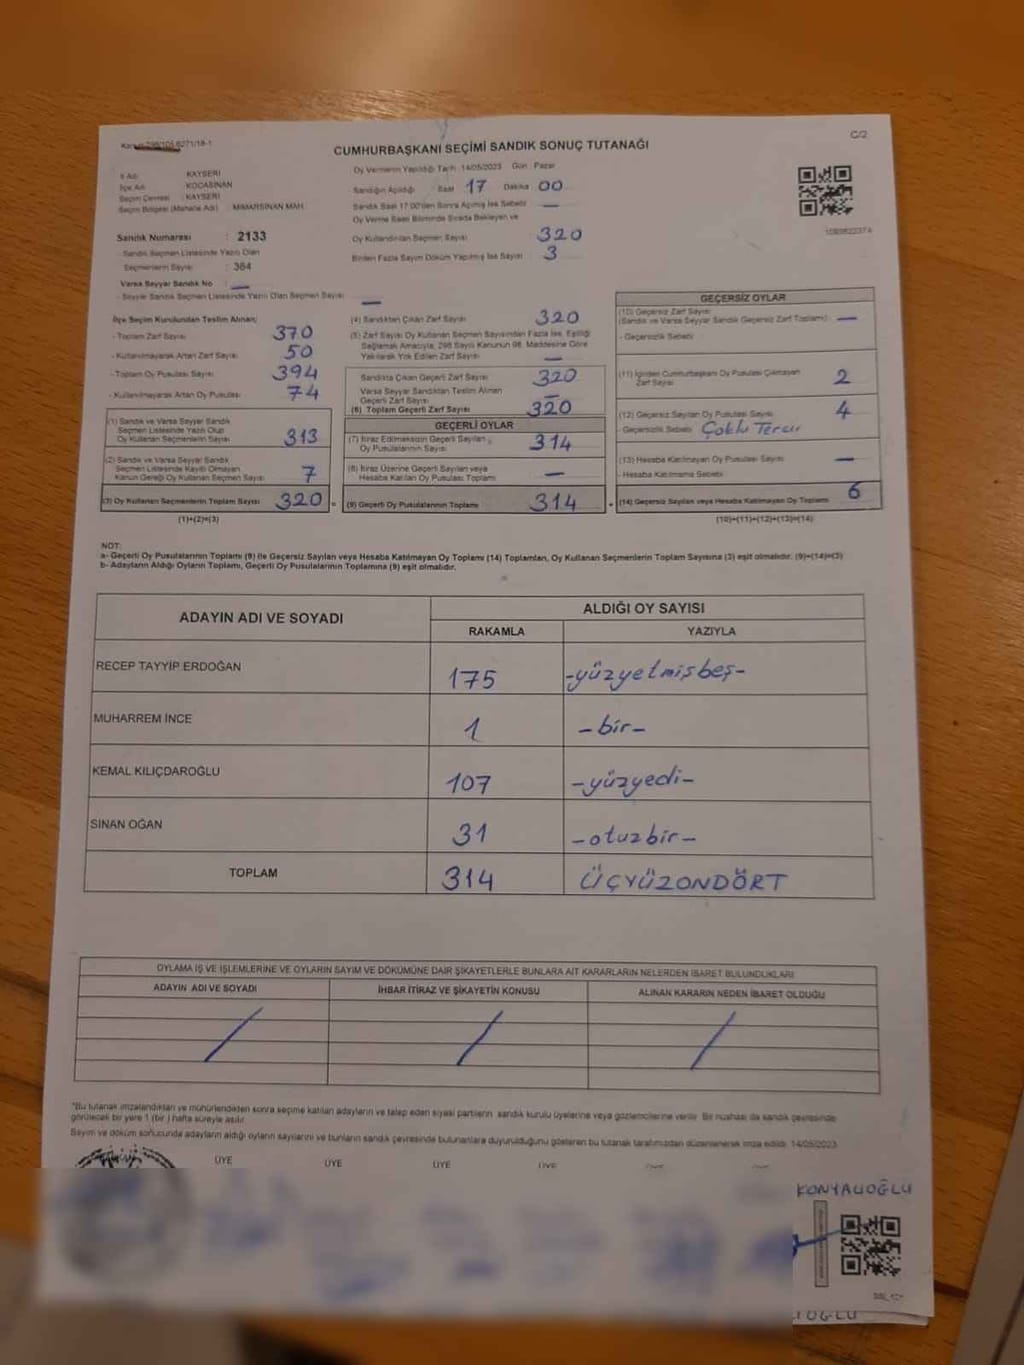 C/2
CUMHURBAŞKANI SEÇİMİ SANDIK SONUÇ TUTANAĞI
İl Adı : KAYSERİ
İlçe Adı : KOCASİNAN
Seçim Çevresi : KAYSERİ
Seçim Bölgesi (Mahalle Adı) : MİMARSİNAN MAH.
Sandık Numarası : 2133
Sandık Seçmen Listesinde Yazılı Olan
Seçmenlerin Sayısı : 384
Varsa Seyyar Sandık No : —
- Seyyar Sandık Seçmen Listesinde Yazılı Olan Seçmen Sayısı : —
Oy Vermenin Yapıldığı Tarih : 14/05/2023 Gün : Pazar
Sandığın Açıldığı Saat 17 Dakika 00
Sandık Saat 17:00'den Sonra Açılmış İse Sebebi —
Oy Verme Saati Bitiminde Sırada Bekleyen ve
Oy Kullandırılan Seçmen Sayısı 320
Birden Fazla Sayım Döküm Yapılmış İse Sayısı 3
İlçe Seçim Kurulundan Teslim Alınan;
- Toplam Zarf Sayısı 370
- Kullanılmayarak Artan Zarf Sayısı 50
- Toplam Oy Pusulası Sayısı 394
- Kullanılmayarak Artan Oy Pusulası 74
(1) Sandık ve Varsa Seyyar Sandık
Seçmen Listesinde Yazılı Olup
Oy Kullanan Seçmenlerin Sayısı 313
(2) Sandık ve Varsa Seyyar Sandık
Seçmen Listesinde Kayıtlı Olmayan
Kanun Gereği Oy Kullanan Seçmen Sayısı 7
(3) Oy Kullanan Seçmenlerin Toplam Sayısı 320
(1)+(2)=(3)
(4) Sandıktan Çıkan Zarf Sayısı 320
(5) Zarf Sayısı Oy Kullanan Seçmen Sayısından Fazla İse, Eşitliği
Sağlamak Amacıyla, 298 Sayılı Kanunun 98. Maddesine Göre
Yakılarak Yok Edilen Zarf Sayısı —
Sandıkta Çıkan Geçerli Zarf Sayısı 320
Varsa Seyyar Sandıktan Teslim Alınan
Geçerli Zarf Sayısı —
(6) Toplam Geçerli Zarf Sayısı 320
GEÇERLİ OYLAR
(7) İtiraz Edilmeksizin Geçerli Sayılan
Oy Pusulalarının Sayısı 314
(8) İtiraz Üzerine Geçerli Sayılan veya
Hesaba Katılan Oy Pusulası Toplamı —
(9) Geçerli Oy Pusulalarının Toplamı 314
GEÇERSİZ OYLAR
(10) Geçersiz Zarf Sayısı
(Sandık ve Varsa Seyyar Sandık Geçersiz Zarf Toplamı) —
- Geçersizlik Sebebi
(11) İçinden Cumhurbaşkanı Oy Pusulası Çıkmayan
Zarf Sayısı 2
(12) Geçersiz Sayılan Oy Pusulası Sayısı 4
- Geçersizlik Sebebi Çoklu Tercih
(13) Hesaba Katılmayan Oy Pusulası Sayısı —
- Hesaba Katılmama Sebebi
(14) Geçersiz Sayılan veya Hesaba Katılmayan Oy Toplamı 6
(10)+(11)+(12)+(13)=(14)
NOT:
a- Geçerli Oy Pusulalarının Toplamı (9) ile Geçersiz Sayılan veya Hesaba Katılmayan Oy Toplamı (14) Toplamları, Oy Kullanan Seçmenlerin Toplam Sayısına (3) eşit olmalıdır. (9)+(14)=(3)
b- Adayların Aldığı Oyların Toplamı, Geçerli Oy Pusulalarının Toplamına (9) eşit olmalıdır.
ADAYIN ADI VE SOYADI
ALDIĞI OY SAYISI
RAKAMLA YAZIYLA
RECEP TAYYİP ERDOĞAN 175 -yüzyetmişbeş-
MUHARREM İNCE 1 -bir-
KEMAL KILIÇDAROĞLU 107 -yüzyedi-
SİNAN OĞAN 31 -otuzbir-
TOPLAM 314 ÜÇYÜZONDÖRT
OYLAMA İŞ VE İŞLEMLERİNE VE OYLARIN SAYIM VE DÖKÜMÜNE DAİR ŞİKAYETLERLE BUNLARA AİT KARARLARIN NELERDEN İBARET BULUNDUKLARI
ADAYIN ADI VE SOYADI İHBAR İTİRAZ VE ŞİKAYETİN KONUSU ALINAN KARARIN NEDEN İBARET OLDUĞU
*Bu tutanak imzalandıktan ve mühürlendikten sonra seçime katılan adayların ve talep eden siyasi partilerin sandık kurulu üyelerine veya gözlemcilerine verilir. Bir nüshası da sandık çevresinde
görülecek bir yere 1 (bir) hafta süreyle asılır.
Sayım ve döküm sonucunda adayların aldığı oyların sayılarını ve bunların sandık çevresinde bulunanlara duyurulduğunu gösteren bu tutanak tarafımızdan düzenlenerek imza edildi. 14/05/2023
ÜYE ÜYE ÜYE ÜYE
KONYALIOĞLU